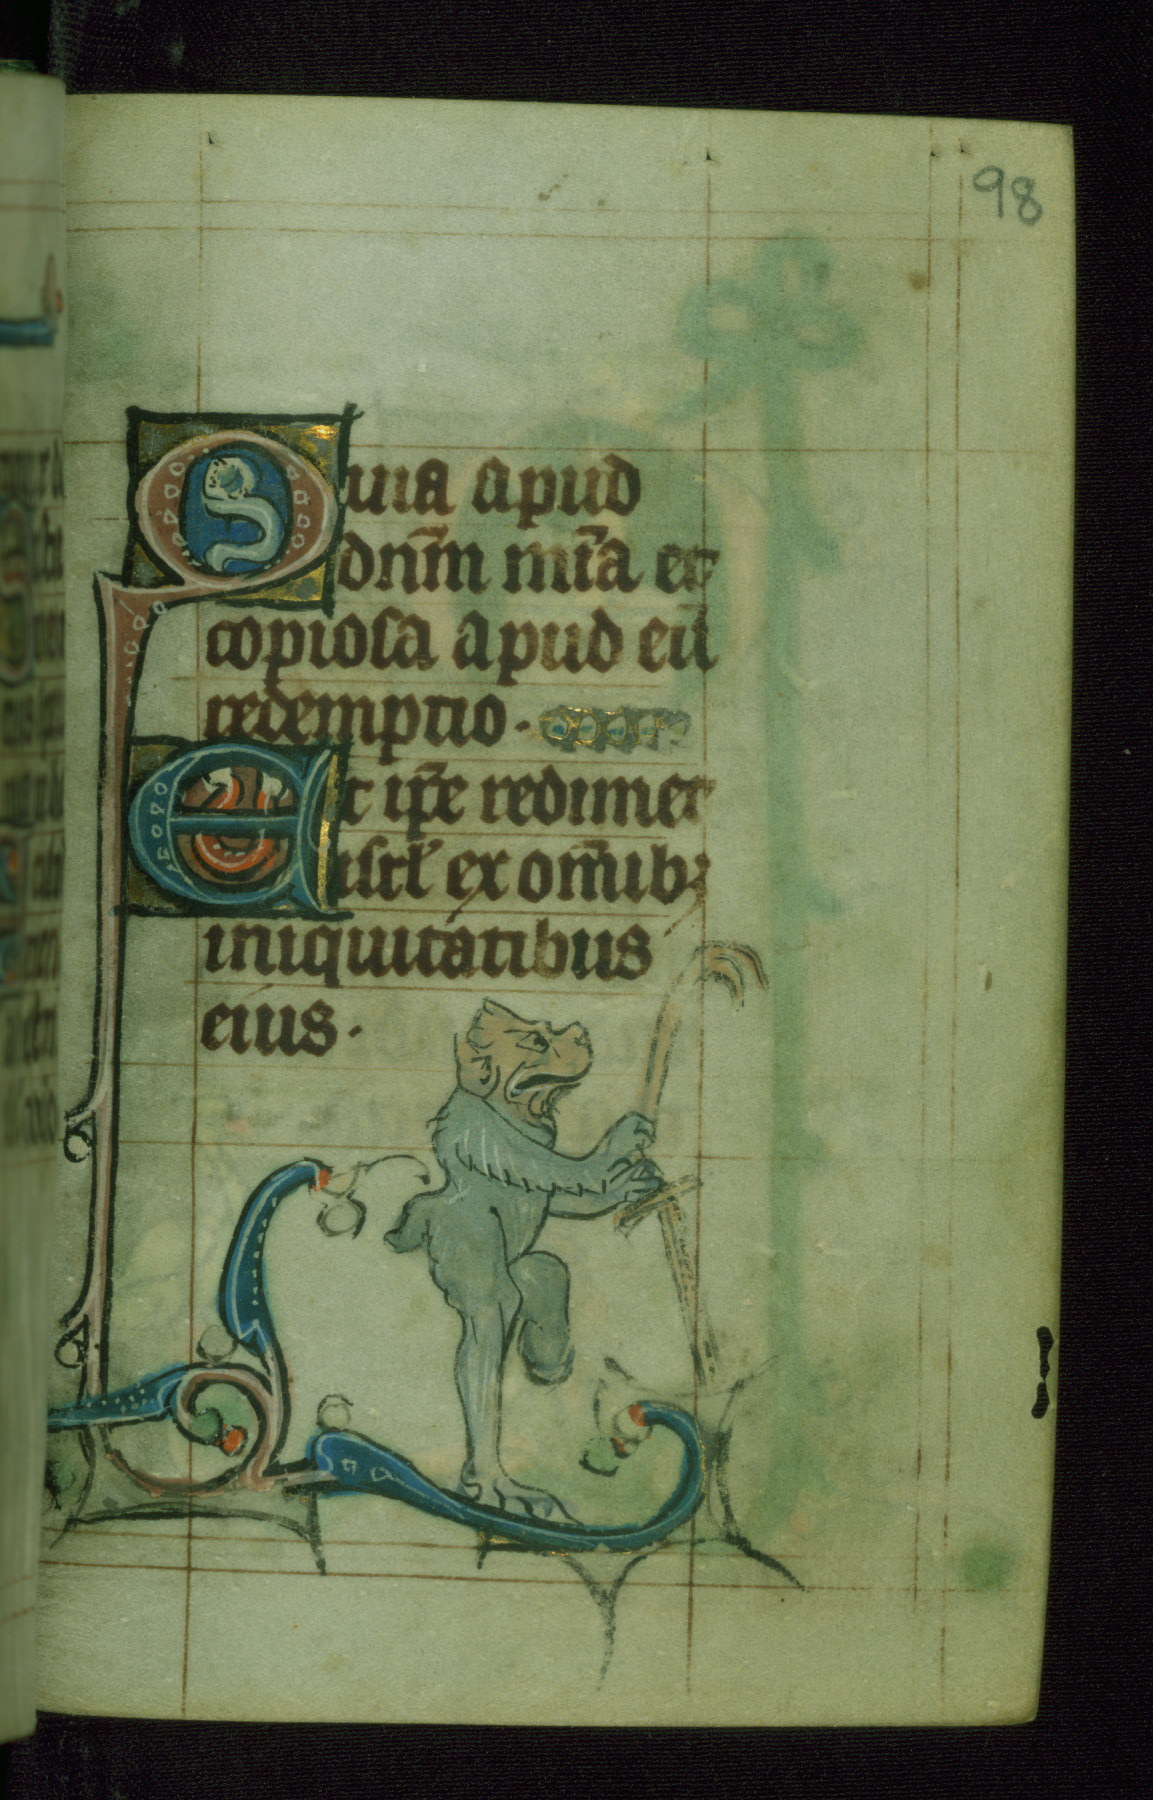 98
Quia apud
dnm̄ mīa et
copiosa apud eū
redemptio.
Et ip̄e redimet
isrl' ex om̄ib;
iniquitatibus
eius.